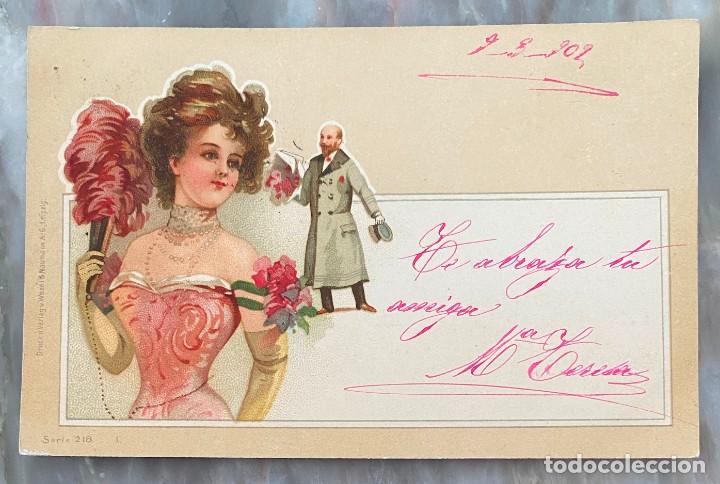 9-3-902
Te abraza tu
amiga
Mª Teresa
Druck u. Verlag v. Wezel & Naumann A.-G. Leipzig.
Serie 218. 1.
todocoleccion.net